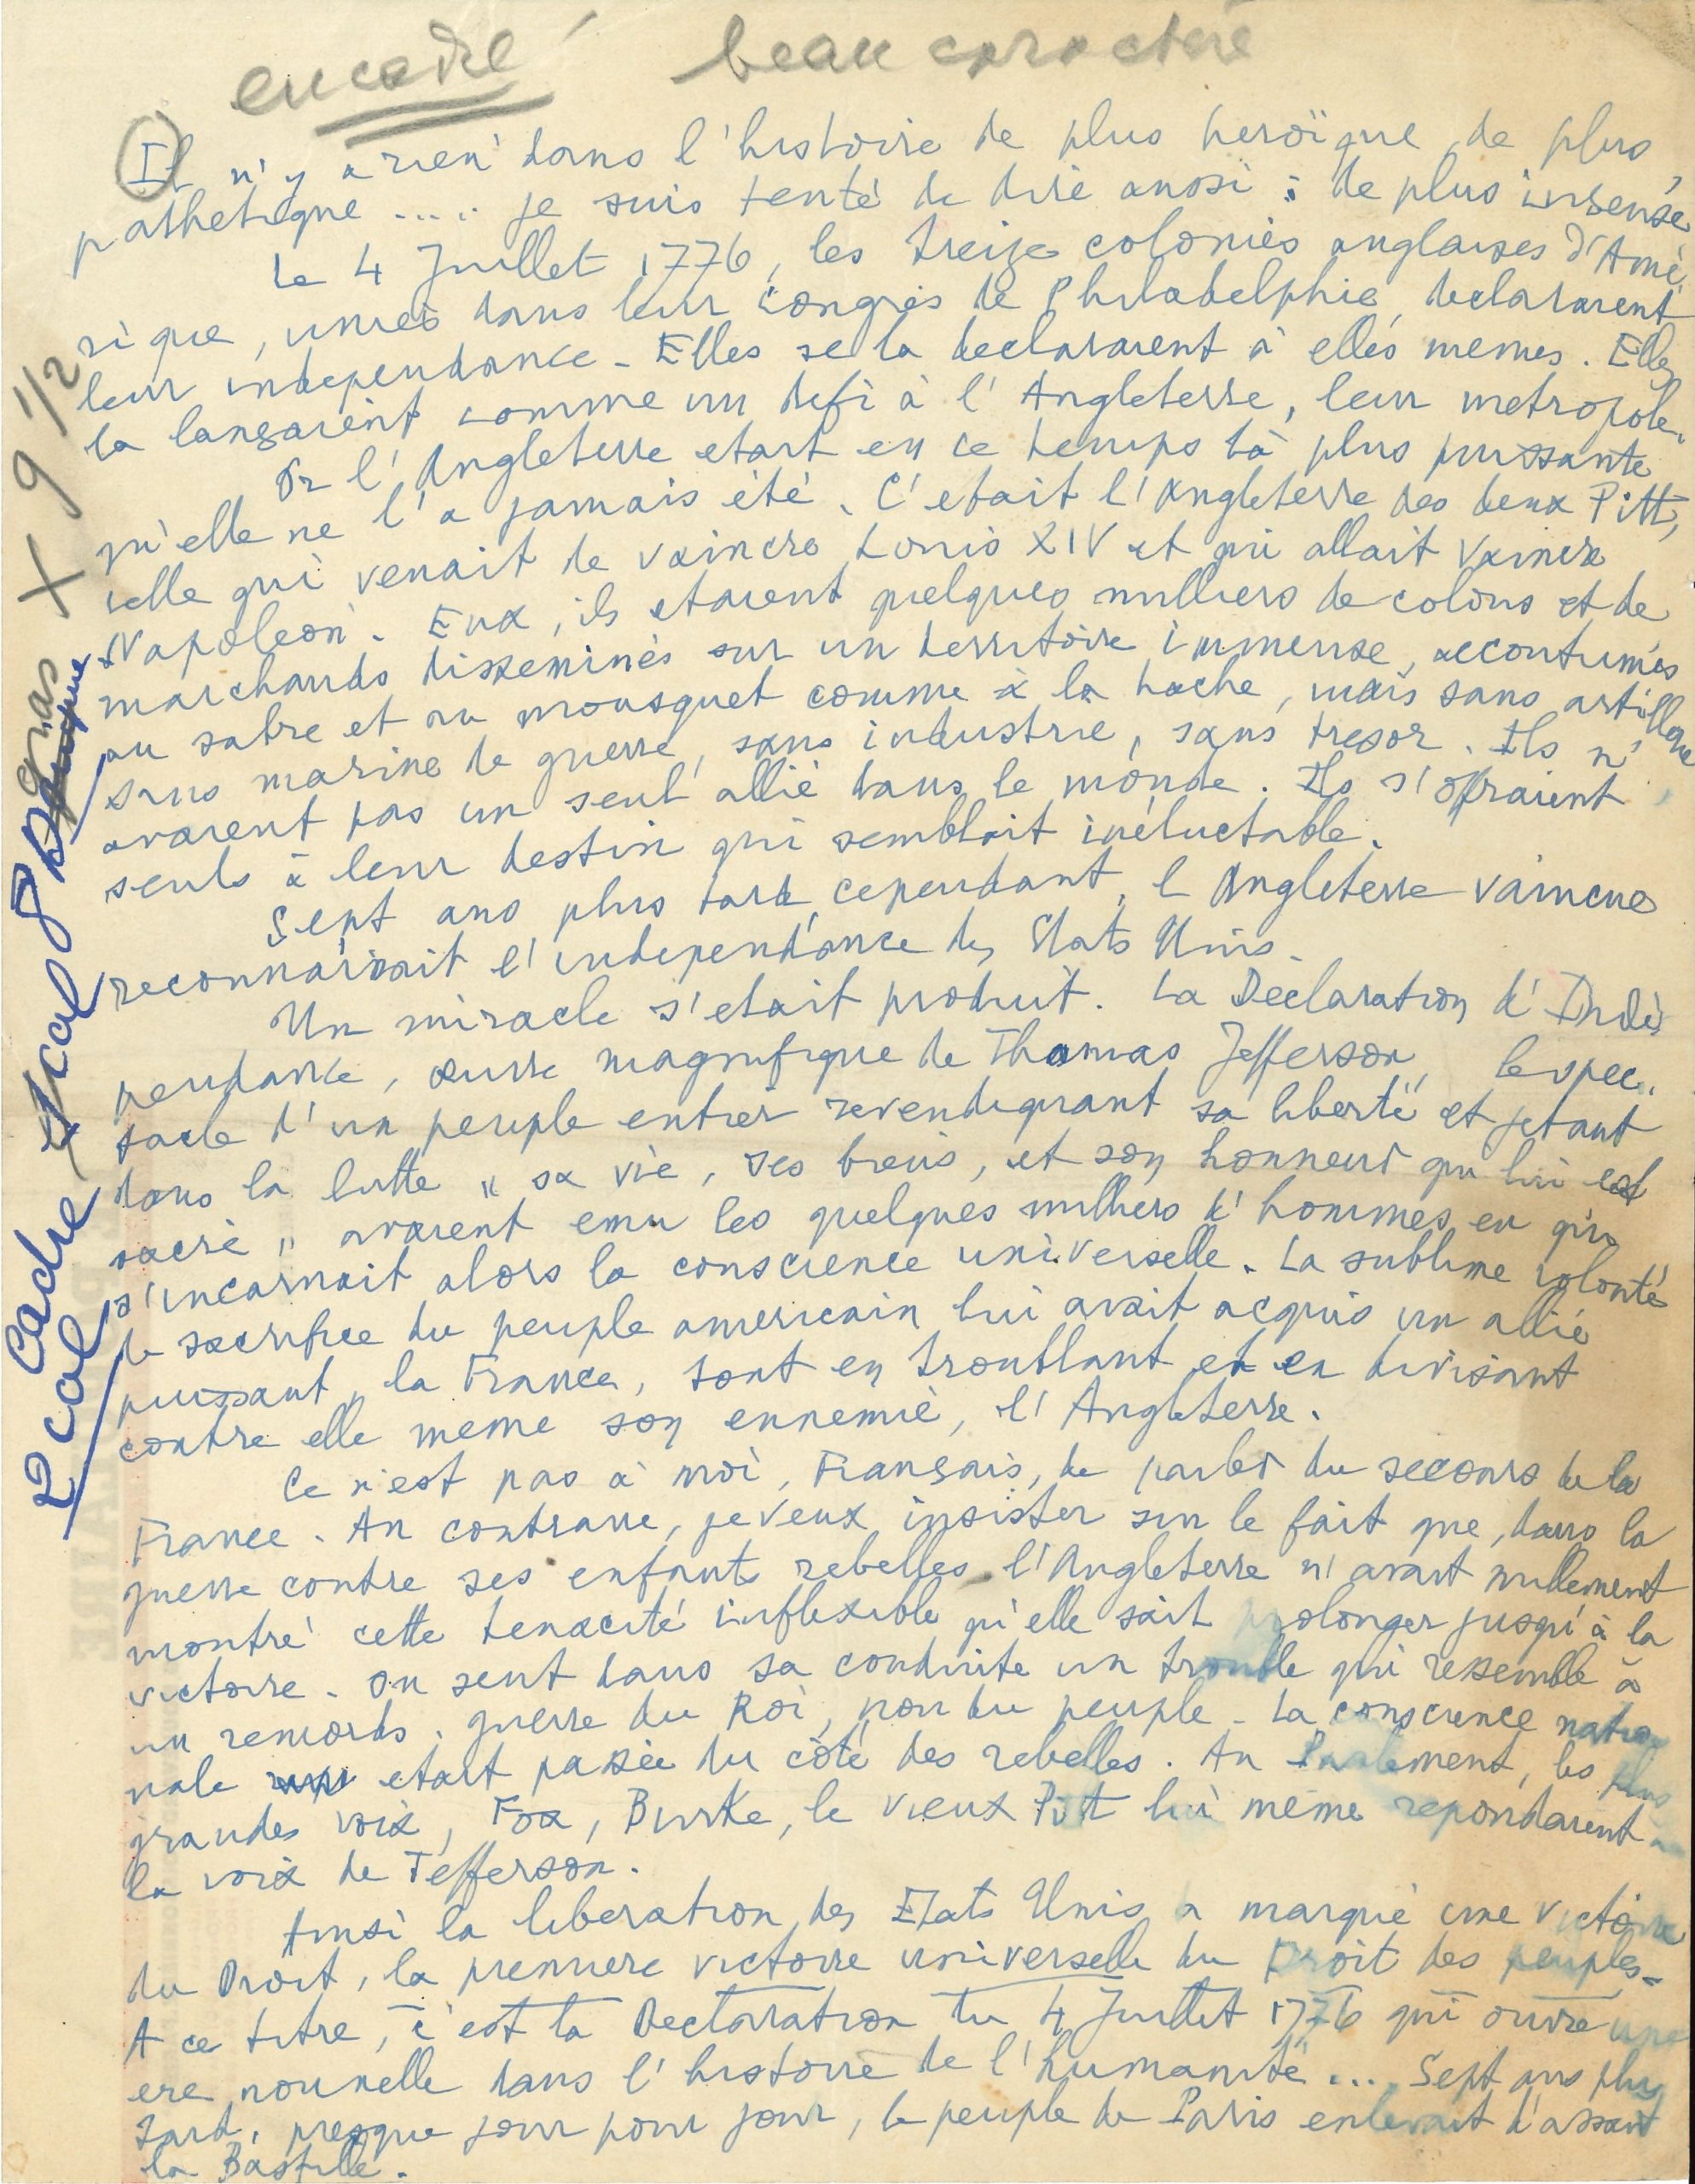 encadré beau caractère
Il n'y a rien dans l'histoire de plus heroïque, de plus
pathetique ..... je suis tenté de dire aussi : de plus insensé
Le 4 Juillet 1776, les treize colonies anglaises d'Amé-
rique, unies dans leur congrès de Philadelphie, declaraient
leur independance - Elles se la declaraient à elles memes. Elles
la lançaient comme un defi à l'Angleterre, leur metropole.
Or l'Angleterre etait en ce temps là plus puissante
qu'elle ne l'a jamais été. C'etait l'Angleterre des deux Pitt,
celle qui venait de vaincre Louis XIV et qui allait vaincre
Napoleon. Eux, ils etaient quelques milliers de colons et de
marchands disseminés sur un territoire immense, accoutumés
au sabre et au mousquet comme à la hache, mais sans artillerie
sans marine de guerre, sans industrie, sans tresor. Ils n'
avaient pas un seul allié dans le monde. Ils s'offraient
seuls à leur destin qui semblait inéluctable.
Sept ans plus tard, cependant, l'Angleterre vaincue
reconnaissait l'independance des Etats Unis.
Un miracle s'etait produit. La Declaration d'Indé-
pendance, œuvre magnifique de Thomas Jefferson, le spec-
tacle d'un peuple entier revendiquant sa liberté et jetant
dans la lutte " sa vie, ses biens, et son honneur qui lui est
sacré " avaient emu les quelques milliers d'hommes en qui
s'incarnait alors la conscience universelle. La sublime volonté
de sacrifice du peuple americain lui avait acquis un allié
puissant, la France, tout en troublant et en divisant
contre elle meme son ennemie, l'Angleterre.
Ce n'est pas à moi, Français, de parler du secours de la
France. Au contraire, je veux insister sur le fait que, dans la
guerre contre ses enfants rebelles, l'Angleterre n'avait nullement
montré cette tenacité inflexible qu'elle sait prolonger jusqu'à la
victoire. On sent dans sa conduite un trouble qui ressemble à
un remords. Guerre du Roi, non du peuple - La conscience natio-
nale etait passée du côté des rebelles. Au Parlement, les plus
grandes voix, Fox, Burke, le vieux Pitt lui meme repondaient à
la voix de Jefferson.
Ainsi la liberation des Etats Unis a marqué une victoire
du Droit, la premiere victoire universelle du Droit des peuples.
A ce titre, c'est la Declaration du 4 Juillet 1776 qui ouvre une
ere nouvelle dans l'histoire de l'humanité ... Sept ans plus
tard, presque jour pour jour, le peuple de Paris enlevait d'assaut
la Bastille.
gras X 9 1/2
Cadre 1 col 8
2 col